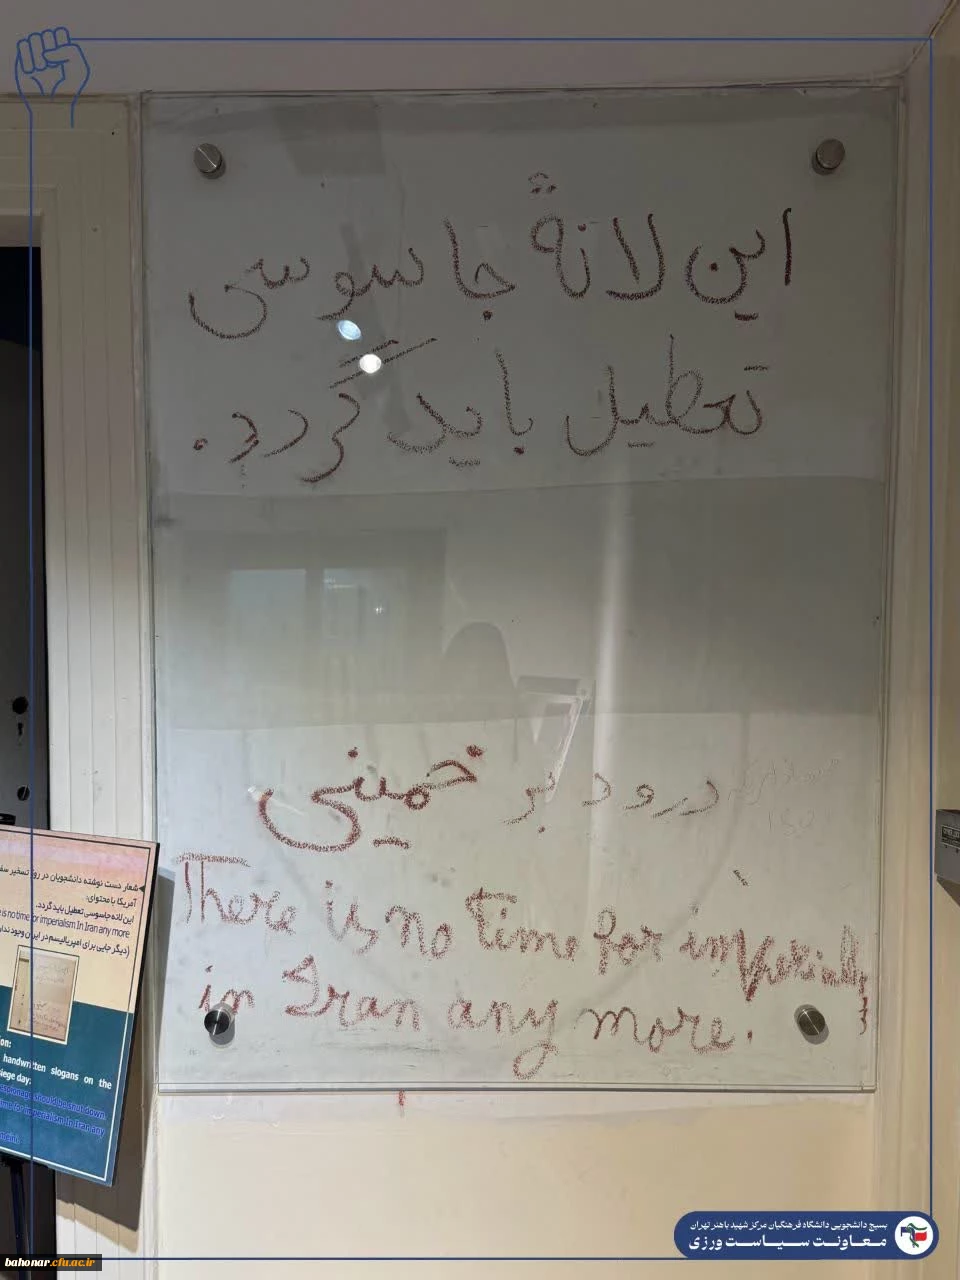 این لانهٔ جاسوسی
تعطیل باید گردد.
درود بر خمینی
There is no time for imperialism
in Iran any more.
شعار دست نوشته دانشجویان در روز تسخیر
آمریکا با محتوای:
این لانه جاسوسی تعطیل باید گردد.
is no time for imperialism In Iran any more
(دیگر جایی برای امپریالیسم در ایران وجود
handwritten slogans on the
siege day:
espionage should be shut down.
time for imperialism In Iran any
بسیج دانشجویی دانشگاه فرهنگیان مرکز شهید باهنر تهران
معاونت سیاست ورزی
bahonar.cfu.ac.ir